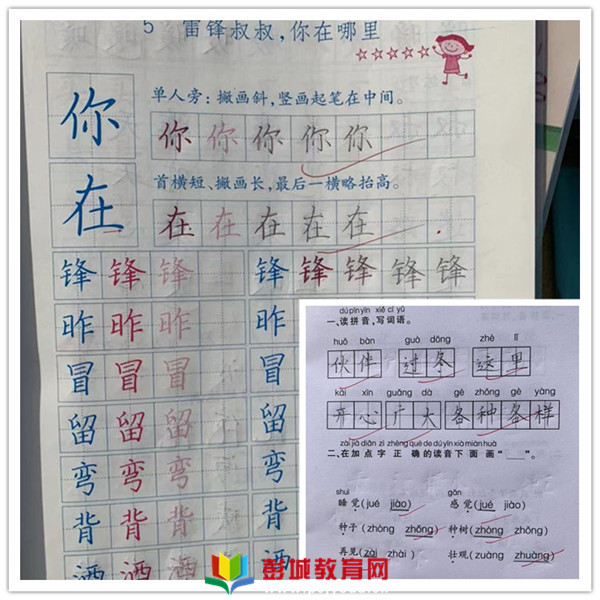 5 雷锋叔叔，你在哪里
你
单人旁：撇画斜，竖画起笔在中间。
你 你 你 你 你
在
首横短、撇画长，最后一横略抬高。
在 在 在 在 在
锋 锋 锋 锋 锋 锋 锋 锋
昨 昨 昨 昨
冒 冒 冒 冒
留 留 留 留
弯 弯 弯 弯
背 背 背 背
洒 洒 洒 洒
dú pīn yīn xiě cí yǔ
一、读拼音，写词语。
huǒ bàn guò dōng zhè lǐ
伙伴 过冬 这里
kāi xīn guǎng dà gè zhǒng gè yàng
开心 广大 各种各样
zài jiā diǎn zì zhèng què de dú yīn xià miàn huà
二、在加点字正确的读音下面画“___”。
shuì gǎn
睡觉(jué jiào) 感觉(jué jiào)
种子(zhòng zhǒng) 种树(zhòng zhǒng)
再见(zài zhài) 壮观(zuàng zhuàng)
彭城教育网